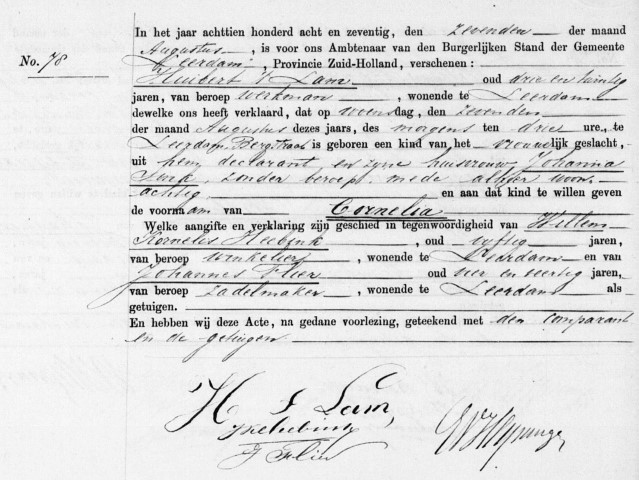 In het jaar achttien honderd acht en zeventig, den zevenden der maand
No. 78
Augustus, is voor ons Ambtenaar van den Burgerlijken Stand der Gemeente
Leerdam, Provincie Zuid-Holland, verschenen:
Huibert 't Lam oud drie en twintig
jaren, van beroep werkman, wonende te Leerdam
dewelke ons heeft verklaard, dat op woensdag, den zevenden
der maand Augustus dezes jaars, des morgens ten drie ure, te
Leerdam, Bergstraat is geboren een kind van het vrouwelijk geslacht,
uit hem declarant en zijne huisvrouw Johanna
zonder beroep mede alhier woon-
achtig en aan dat kind te willen geven
de voornaam van Cornelia
Welke aangifte en verklaring zijn geschied in tegenwoordigheid van Willem
Kornelis Heebink, oud vyftig jaren,
van beroep winkelier, wonende te Leerdam en van
Johannes Flier oud vier en veertig jaren,
van beroep zadelmaker, wonende te Leerdam als
getuigen.
En hebben wij deze Acte, na gedane voorlezing, geteekend met den comparant
en de getuigen
H 't Lam
J Flier